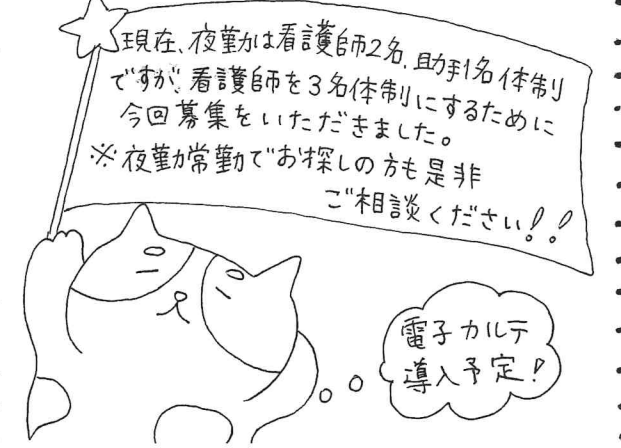 現在、夜勤は看護師2名、助手1名体制
ですが、看護師を3名体制にするために
今回募集をいただきました。
※夜勤常勤でお探しの方も是非
ご相談ください!!
電子カルテ
導入予定!